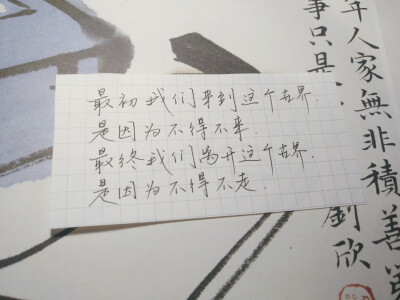 最初我们来到这个世界.
是因为不得不来.
最终我们离开这个世界.
是因为不得不走.
年人家無非積善
事只是
劉欣